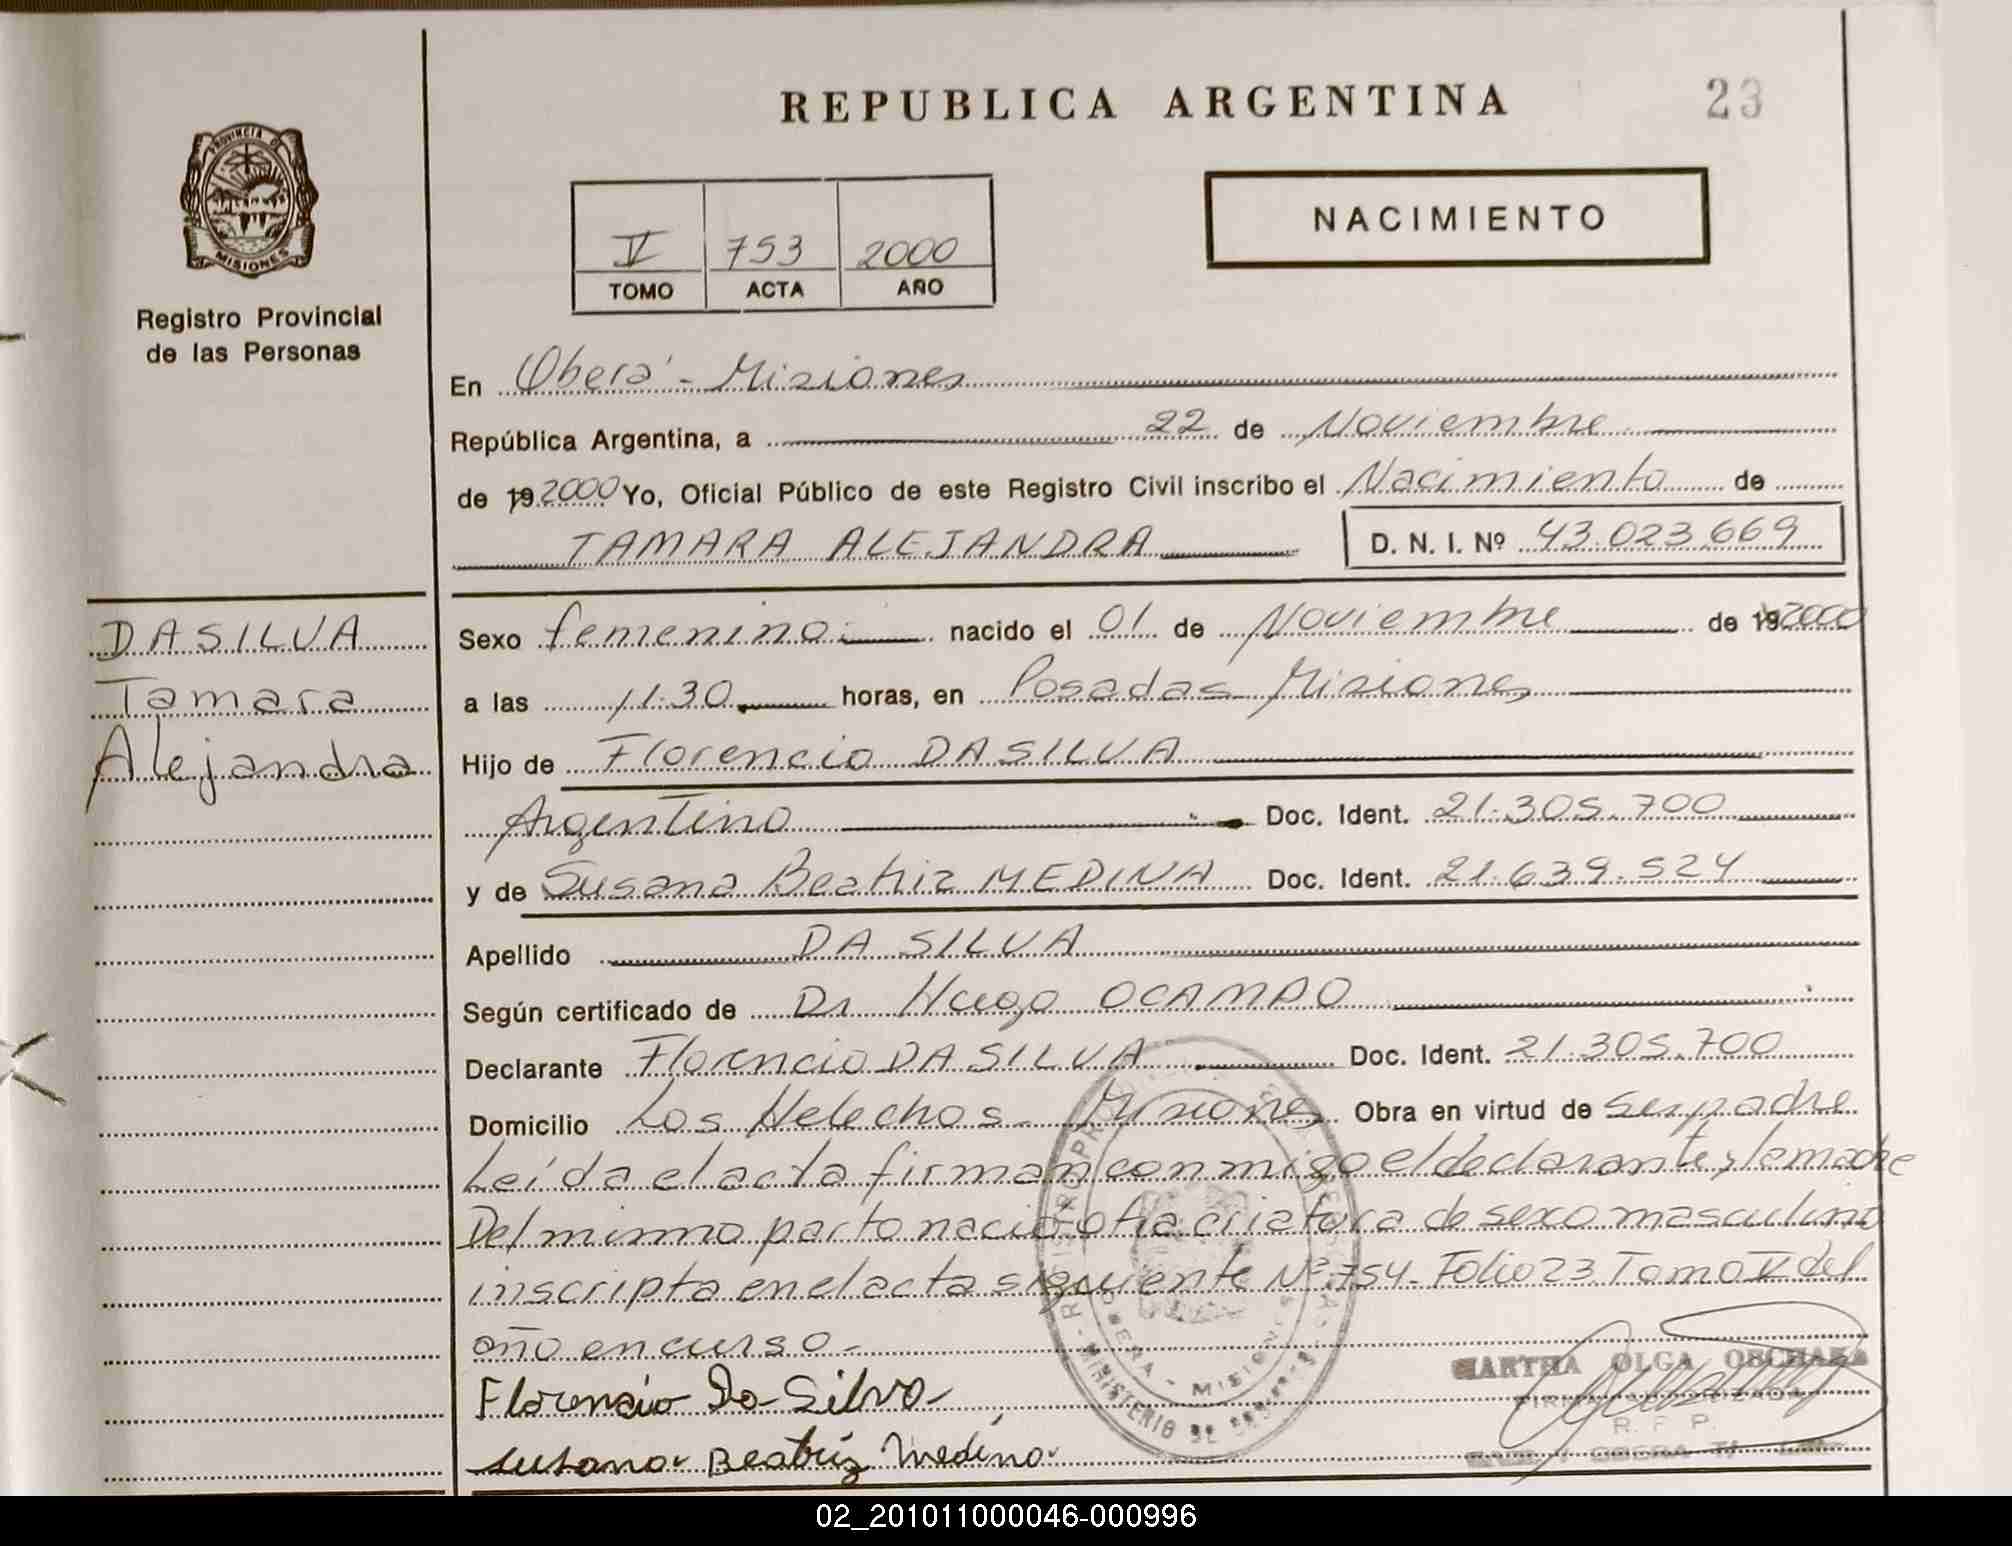 REPUBLICA ARGENTINA
23
PROVINCIA DE
MISIONES
Registro Provincial
de las Personas
V 753 2000
TOMO ACTA AÑO
NACIMIENTO
En Oberá - Misiones
República Argentina, a 22 de Noviembre
de 19 2000 Yo, Oficial Público de este Registro Civil inscribo el Nacimiento de
TAMARA ALEJANDRA D. N. I. Nº 43.023.669
DA SILVA
Tamara
Alejandra
Sexo femenino nacido el 01 de Noviembre de 19 2000
a las 11.30 horas, en Posadas Misiones
Hijo de Florencio DA SILVA
Argentino Doc. Ident. 21.305.700
y de Susana Beatriz MEDINA Doc. Ident. 21.639.524
Apellido DA SILVA
Según certificado de Dr Hugo OCAMPO
Declarante Florencio DA SILVA Doc. Ident. 21.305.700
Domicilio Los Helechos - Misiones Obra en virtud de ser padre
Leída el acta firman conmigo el declarante y la madre
Del mismo parto nació otra criatura de sexo masculino
inscripta en el acta siguiente Nº 754 - Folio 23 Tomo V del
año en curso -
Florencio Da Silva
Susana Beatriz Medina
MARTHA OLGA
FIRMA AUTORIZADA
R. P. P.
OBERA
OBERA - MISIONES
MINISTERIO DE
02_201011000046-000996